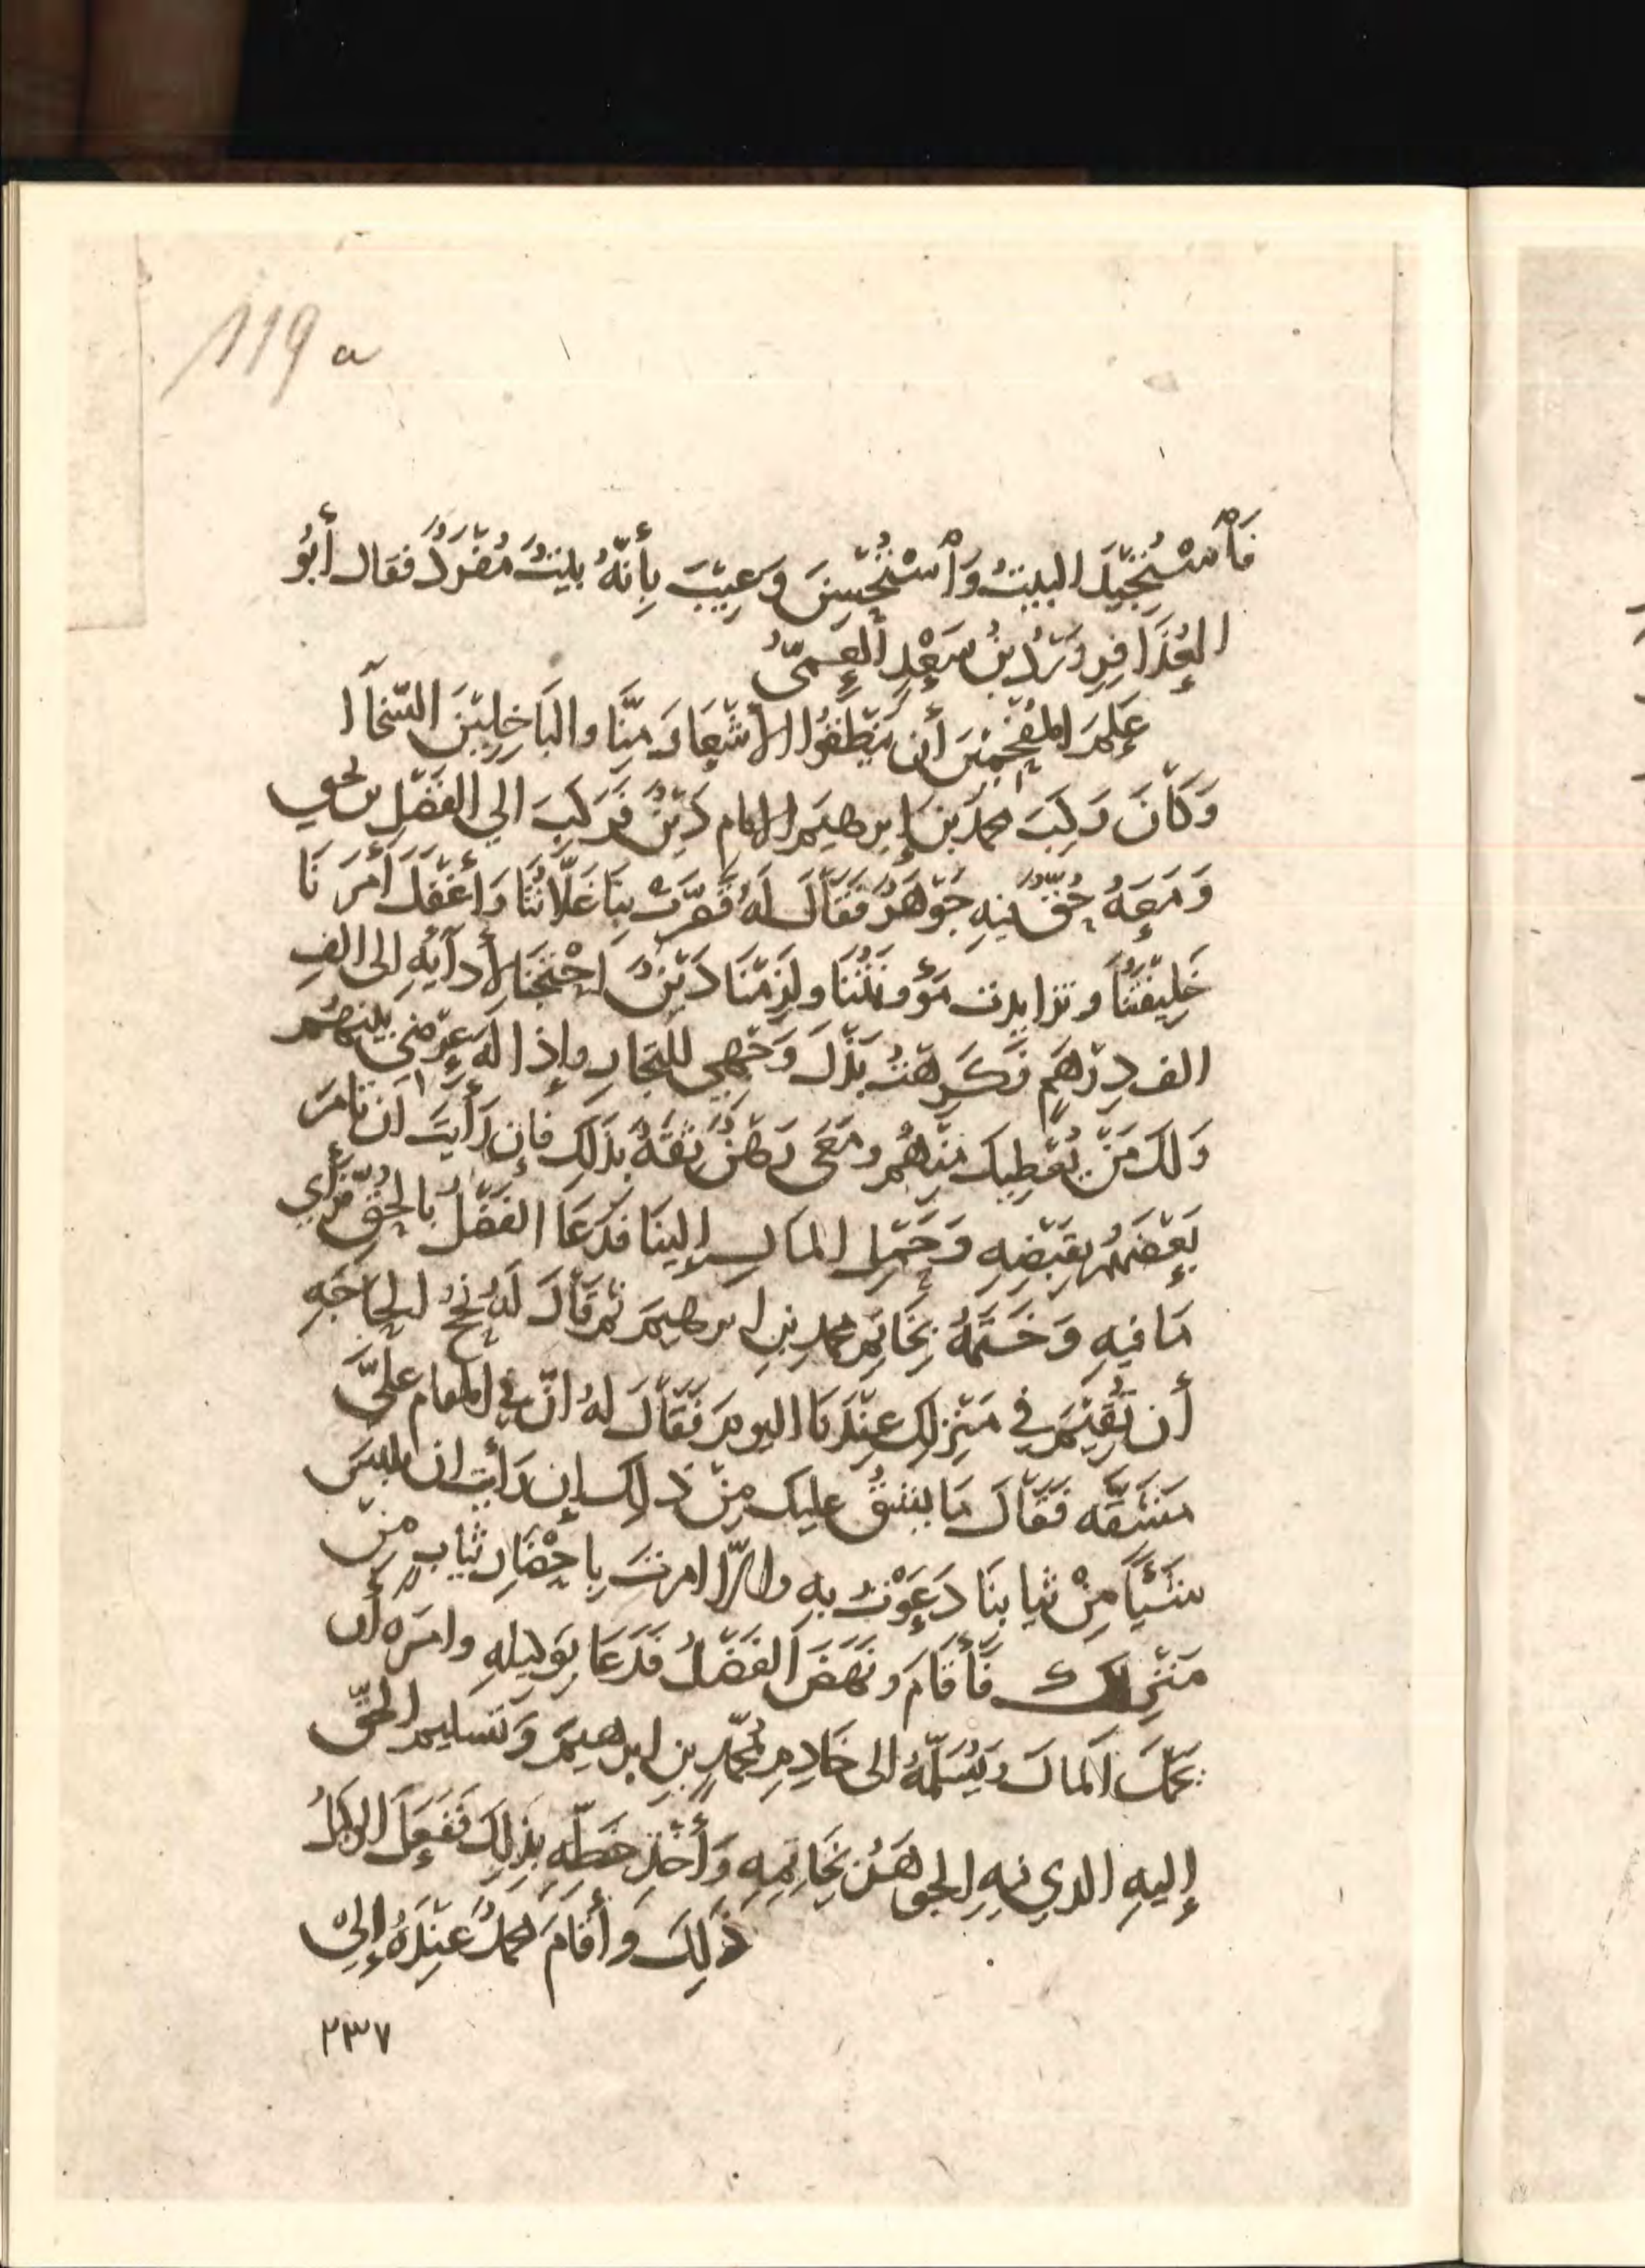 119 a
فَٱسْتُجِيدَ البيتُ وَٱسْتُحْسِنَ وَعِيبَ بِأَنَّهُ بَيْتٌ مُفْرَدٌ فقال أَبُو
العُذَافِرِ وَرْدُ بنُ سَعْدٍ العَمِّىُّ
عَلَّمَ المُفْحَمِينَ أن يَنْطِقُوا الأَشْعَارَ مِنَّا والبَاخِلِينَ السَّخَآا
وَكَانَ رَكِبَ محمدَ بنَ إبرهيمَ الإمام دَيْنٌ فَرَكِبَ الي الفَضْلِ بن يحيي
وَمَعَهُ حُقٌّ فيهِ جَوْهَرٌ فَقَالَ لَهُ قَصَّرَتْ بِنَا غَلَّاتُنَا وَأَغْفَلَ أَمْرَنَا
خَلِيفَتُنَا وتزايدت مَؤُونَتُنَا ولَزِمَنَا دَيْنٌ احْتَجْنَا لأَدَآيِهِ إلى الفِ
الف دِرْهَمٍ فَكَرِهْتُ بَذْلَ وَجْهِي للتجارِ وإِذَالَةَ عِرْضِى بينهم
وَلَكَ مَنْ يُعْطِيكَ مِنْهُم ومَعَى رَهْنٌ ثِقَةٌ بذَلِكَ فَإِن رَأَيْتَ أَن تَامُرَ
بَعْضَهُمْ بِقَبْضِهِ وَحَمْلِ المَالِ إِلينَا فَدَعَا الفَضْلُ بالحُقِّ فَرَأَي
مَا فيهِ وَخَتَمَهُ بِخَاتَمِ محمدِ بنِ ابرهيمَ ثم قَالَ لَهُ نُجْحُ الحَاجَةِ
أن تُقِيمَ في مَنْزِلِك عِنْدَنَا اليومَ فَقَالَ لهُ انّ في المقام عليَّ
مَشَقَّه فَقَالَ مَا يشُقُّ عليك مِنْ ذَلِك إن رَأيت ان تلبسَ
شَيْأً مِنْ ثيابنَا دَعَوْتُ بِهِ وإلّا امرتَ بِإحْضَارِ ثيابٍ مِنْ
مَنْزِلك فَأَقَامَ ونَهَضَ الفَضْلُ فَدَعَا بِوَكِيلِهِ وامَرَه أن
يحملَ المالَ ويُسَلِّمَهُ الى خَادِمِ مُحَمَّدِ بنِ ابرهيمَ وَتسليم الحُقِّ
إليهِ الذي فيهِ الجوهَرُ بِخَاتِمِهِ وَأَخْذِ خَطِّهِ بِذَلِكَ فَفَعَلَ الوكيلُ
ذَلِكَ وَأَقَامَ محمدٌ عِنْدَهُ إلى
٢٣٧